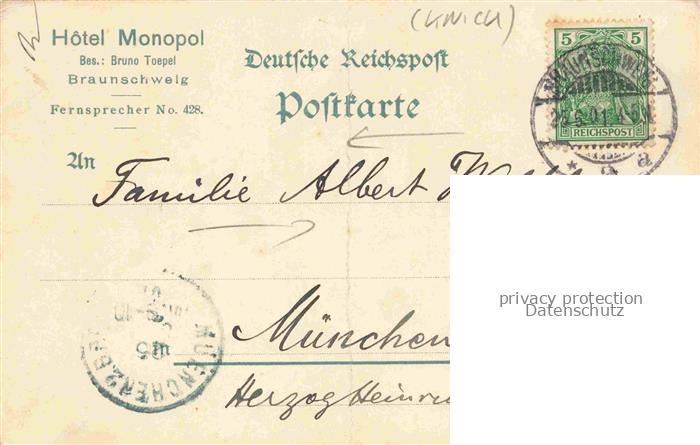 (KNICK)
Hôtel Monopol
Bes.: Bruno Toepel
Braunschweig
Fernsprecher No. 428.
Deutsche Reichspost
Postkarte
5 5
REICHSPOST
An
Familie Albert
München
MUENCHEN 2.B.
Herzog
privacy protection
Datenschutz